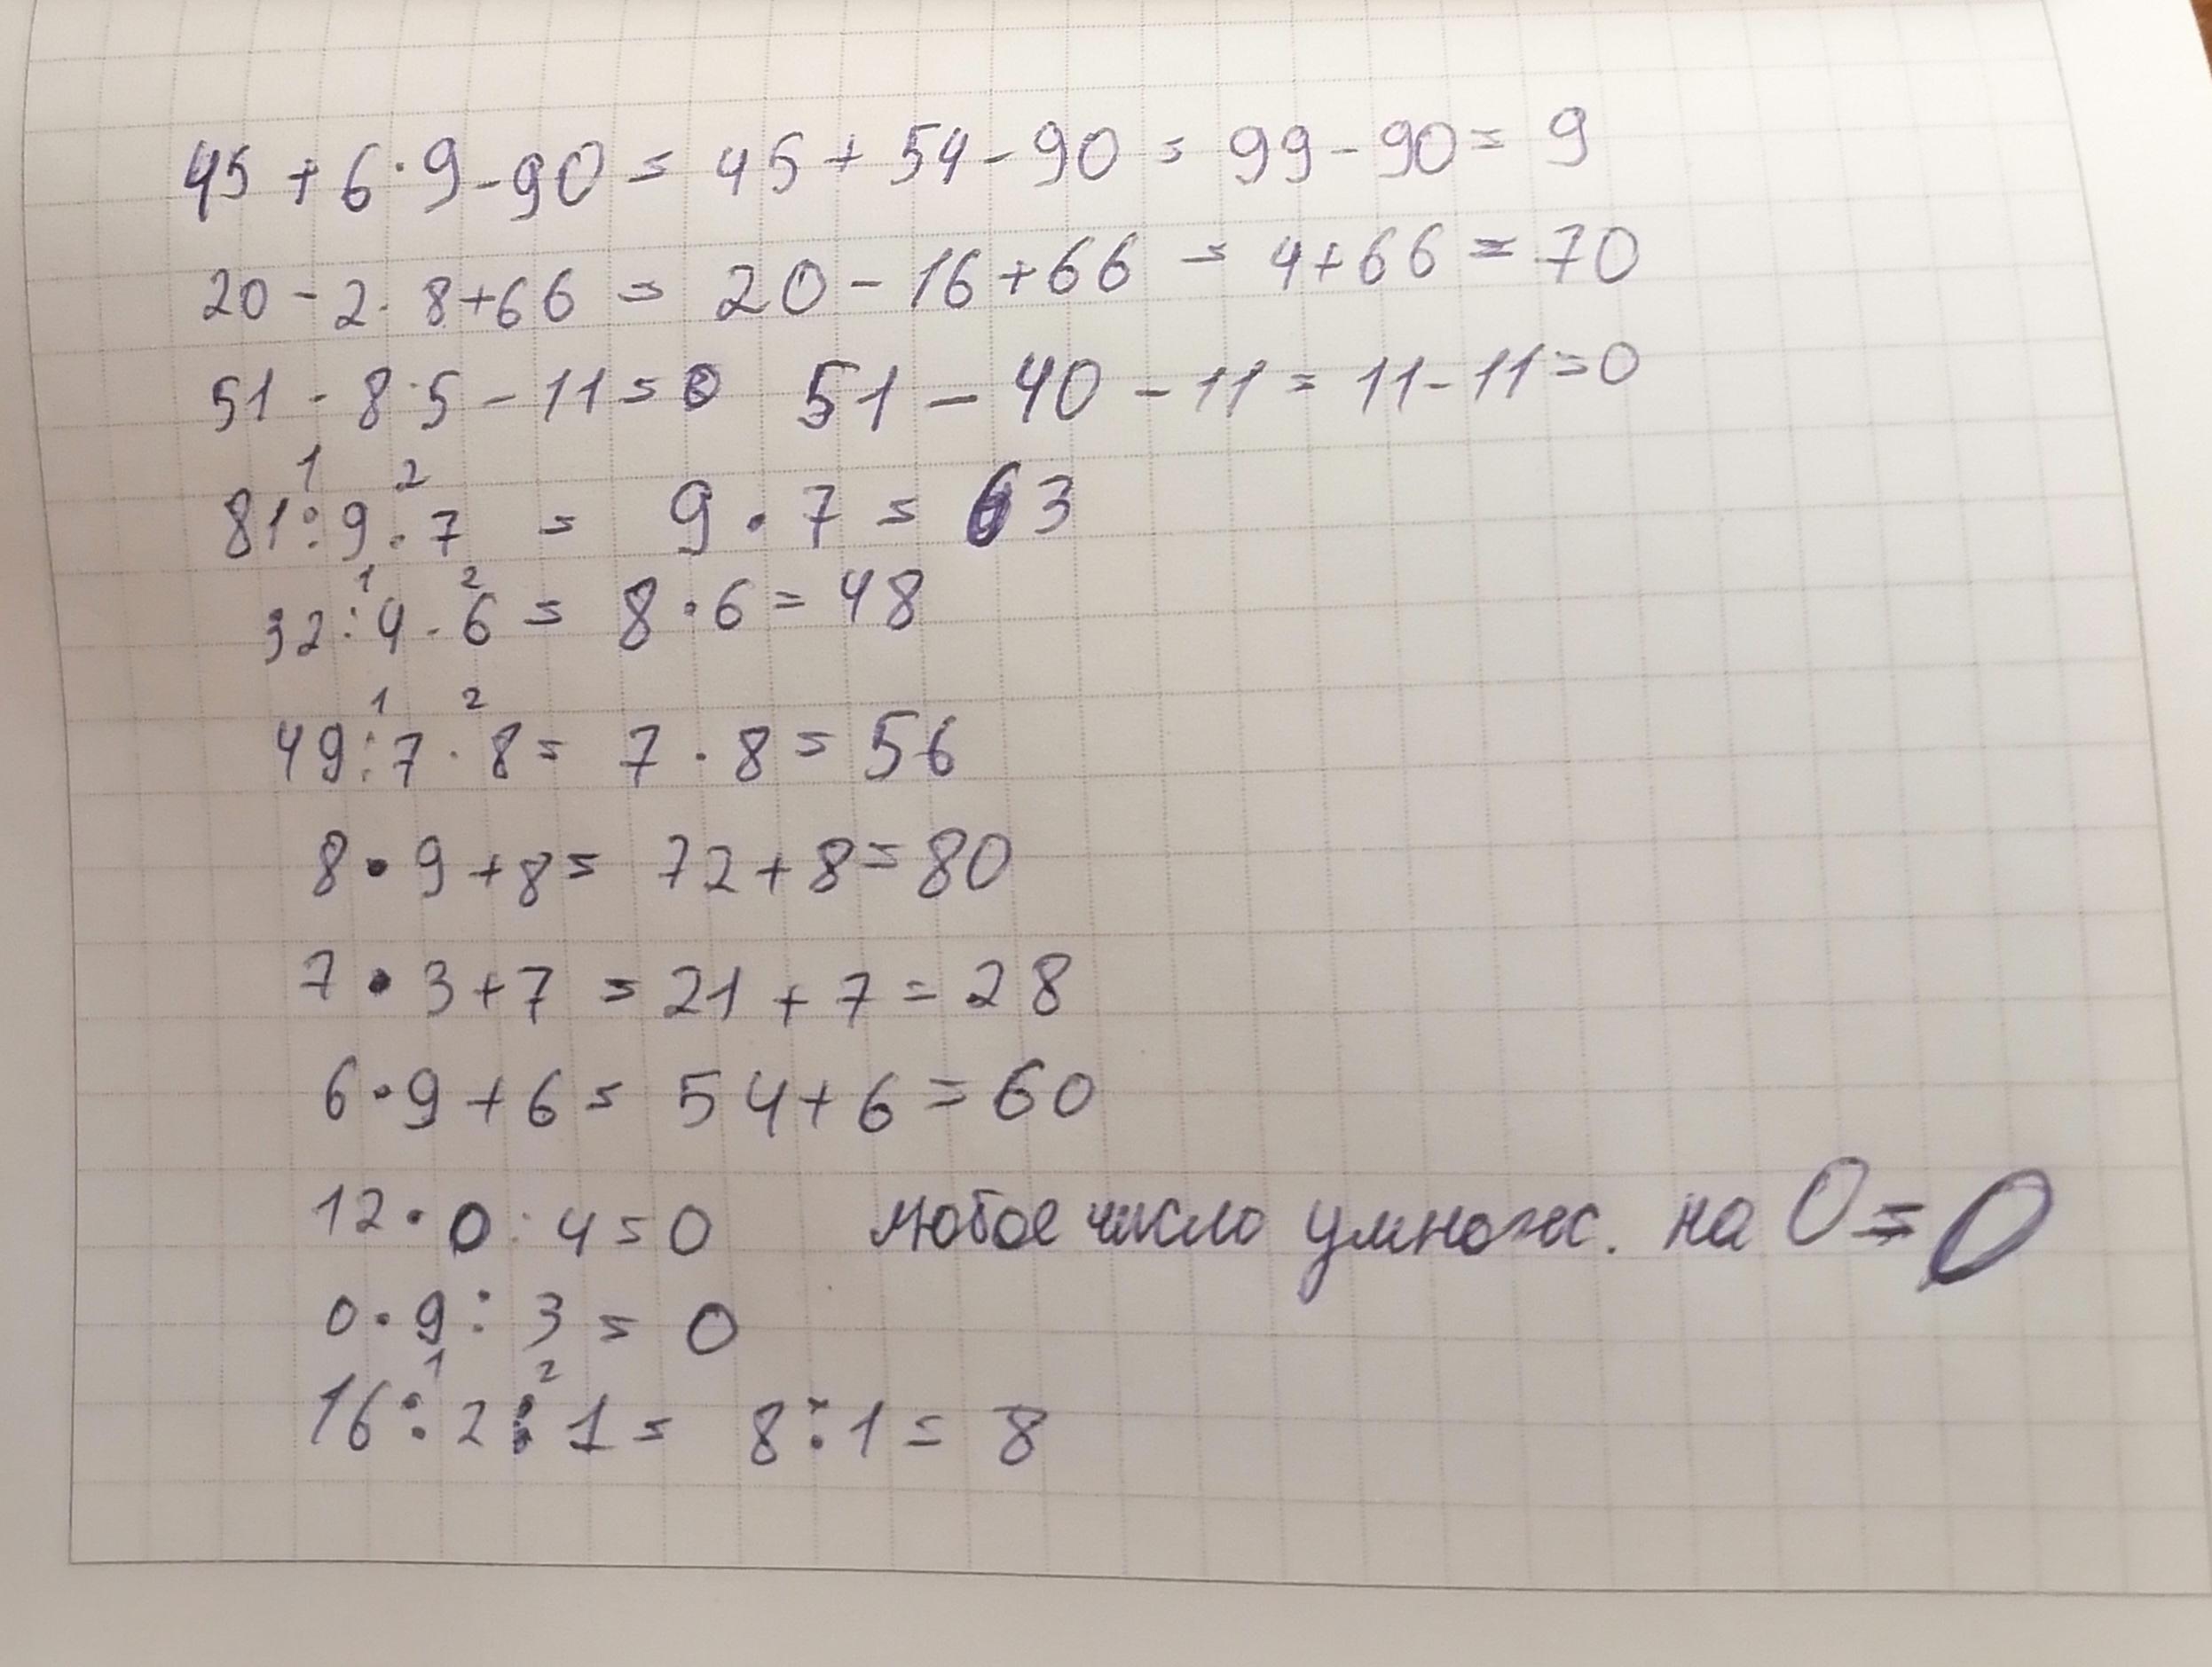 45 + 6 · 9 - 90 = 45 + 54 - 90 = 99 - 90 = 9
20 - 2 · 8 + 66 = 20 - 16 + 66 = 4 + 66 = 70
51 - 8 · 5 - 11 = 0 51 - 40 - 11 = 11 - 11 = 0
1 2
81 : 9 · 7 = 9 · 7 = 63
1 2
32 : 4 · 6 = 8 · 6 = 48
1 2
49 : 7 · 8 = 7 · 8 = 56
8 · 9 + 8 = 72 + 8 = 80
7 · 3 + 7 = 21 + 7 = 28
6 · 9 + 6 = 54 + 6 = 60
12 · 0 : 4 = 0 любое число умнож. на 0 = 0
0 · 9 : 3 = 0
1 2
16 : 2 : 1 = 8 : 1 = 8